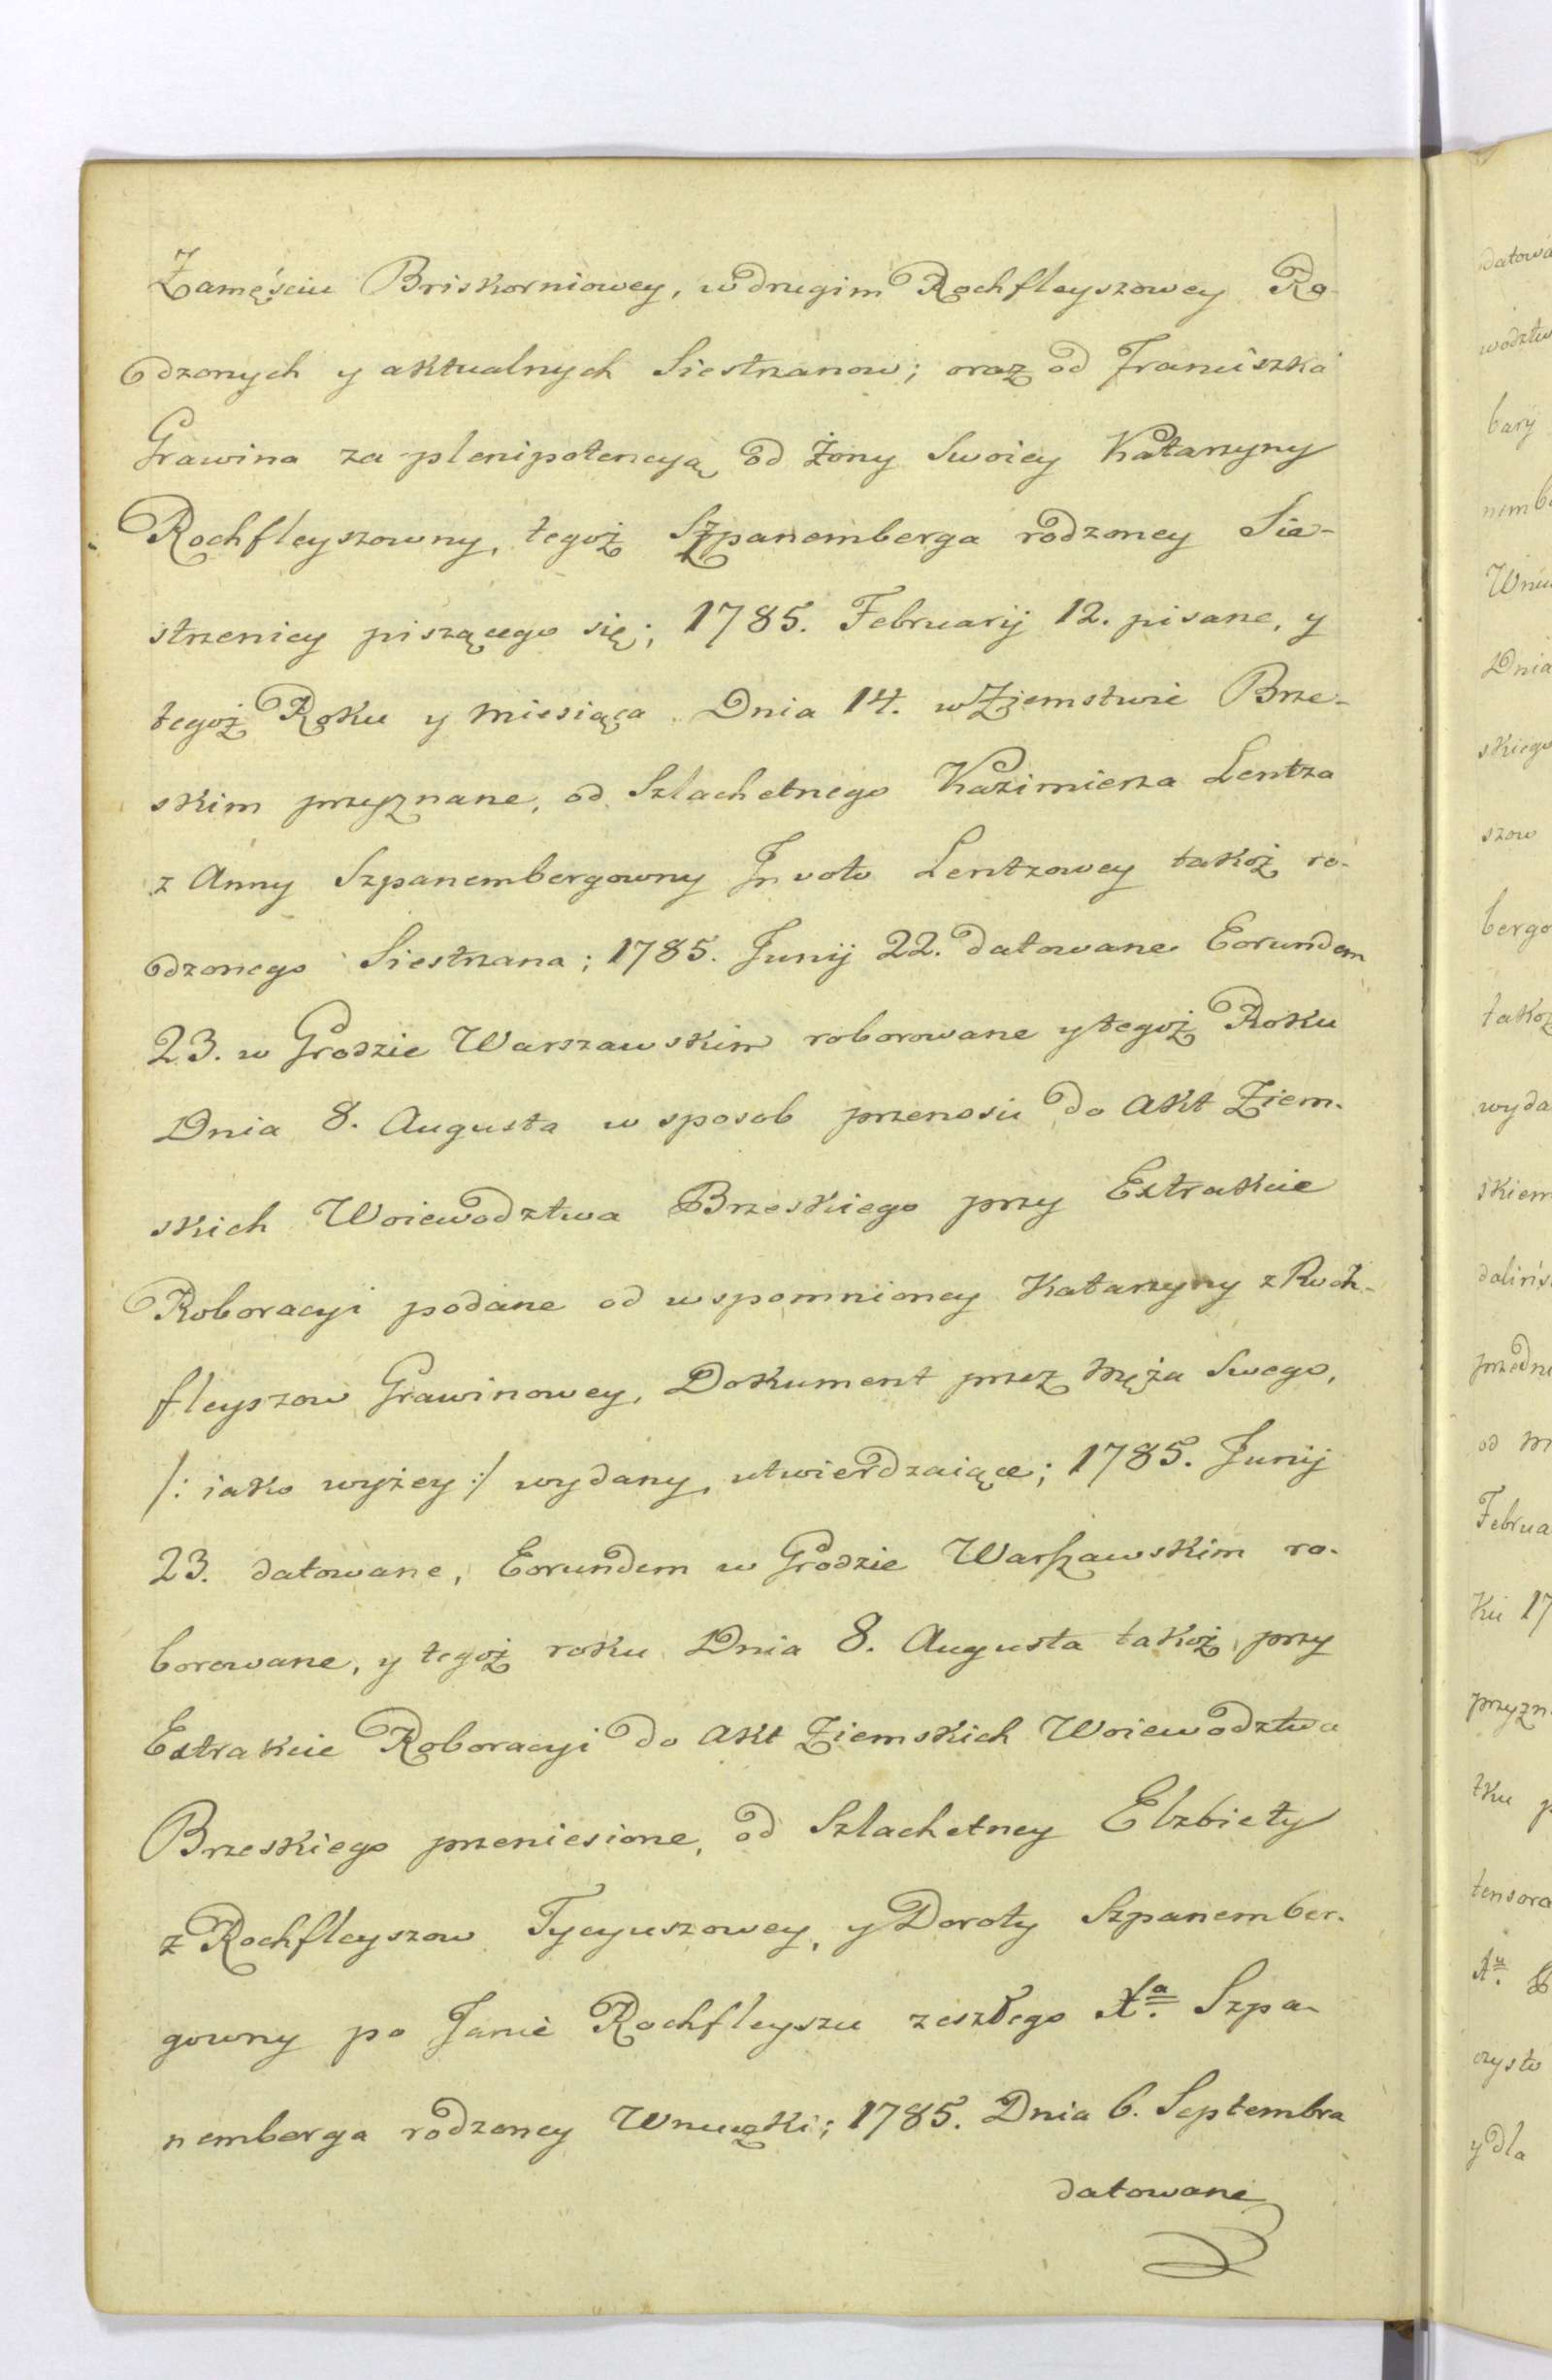 Zamęściu Briskorniowey, w drugim Rochfleyszowey Ro-
dzonych y aktualnych Siestrzanow; oraz od Franciszka
Grawina za plenipotencyą od Żony Swoiey Katarzyny
Rochfleyszowny, tegoż Szpanemberga rodzoney Sie-
strzenicy piszącego się; 1785. Februarij 12. pisane, y
tegoż Roku y Miesiąca Dnia 14. w Ziemstwie Brze-
skim przyznane, od Szlachetnego Kazimierza Lentza
z Anny Szpanembergowny In voto Lentzowey takoż ro-
dzonego Siestrzana; 1785. Junij 22. datowane Eorundem
23. w Grodzie Warszawskim roborowane y tegoż Roku
Dnia 8. Augusta w sposob przenosu do Akt Ziem-
skich Woiewodztwa Brzeskiego przy Extrakcie
Roboracyi podane od wspomnioney Katarzyny z Roch-
fleyszow Grawinowey, Dokument przez Męża Swego,
/: iako wyżey :/ wydany, utwierdzaiące; 1785. Junij
23. datowane, Eorundem w Grodzie Warszawskim ro-
borowane, y tegoż roku Dnia 8. Augusta takoż przy
Extrakcie Roboracyi do Akt Ziemskich Woiewodztwa
Brzeskiego przeniesione, od Szlachetney Elzbiety
z Rochfleyszow Tycyuszowey, y Doroty Szpanember-
gowny po Janie Rochfleyszu zeszłego Xa. Szpa-
nemberga rodzoney Wnuczki; 1785. Dnia 6. Septembra
datowane
datowa
wodztw
bary
nemb
Wnu
Dnia
skiego
szow
bergo
takoż
wyda
skiem
dalińs
przedn
od M
Februa
ku 17
przyzn
tku p
tensora
Xu.
czysto
y dla